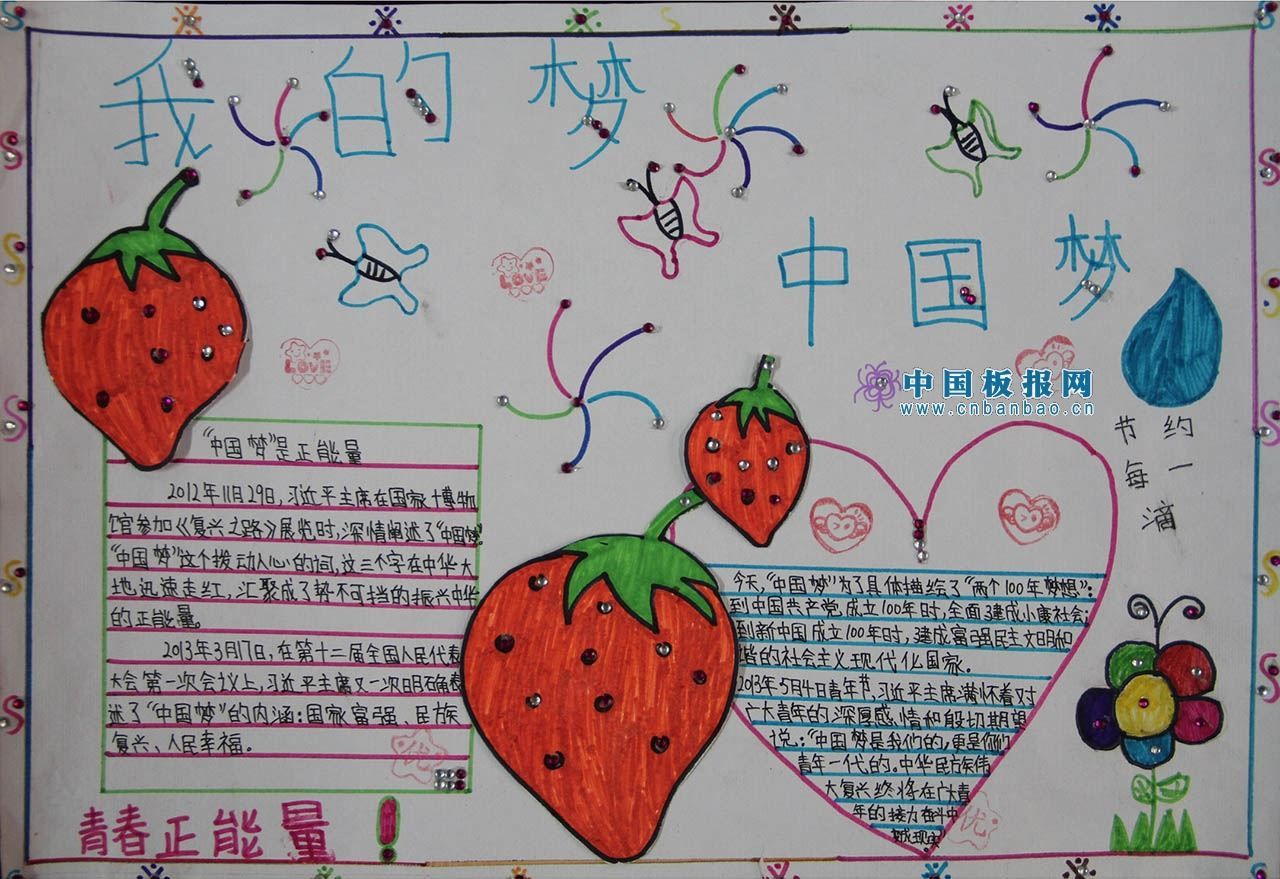 我的梦
中国梦
LOVE
LOVE
中国板报网
www.cnbanbao.cn
节约
每一
滴
“中国梦”是正能量
2012年11月29日,习近平主席在国家博物
馆参加《复兴之路》展览时,深情阐述了“中国梦”。
“中国梦”这个拨动人心的词,这三个字在中华大
地迅速走红,汇聚成了势不可挡的振兴中华
的正能量。
2013年3月17日,在第十二届全国人民代表
大会第一次会议上,习近平主席又一次明确表
述了“中国梦”的内涵:国家富强、民族
复兴、人民幸福。
优
今天,“中国梦”为了具体描绘了“两个100年梦想”:
到中国共产党成立100年时,全面建成小康社会;
到新中国成立100年时,建成富强民主文明和
谐的社会主义现代化国家。
2013年5月4日青年节,习近平主席满怀着对
广大青年的深厚感情和殷切期望
说:“中国梦是我们的,更是你们
青年一代的。中华民族伟
大复兴终将在广大青
年的接力奋斗中
变成现实
优
青春正能量!